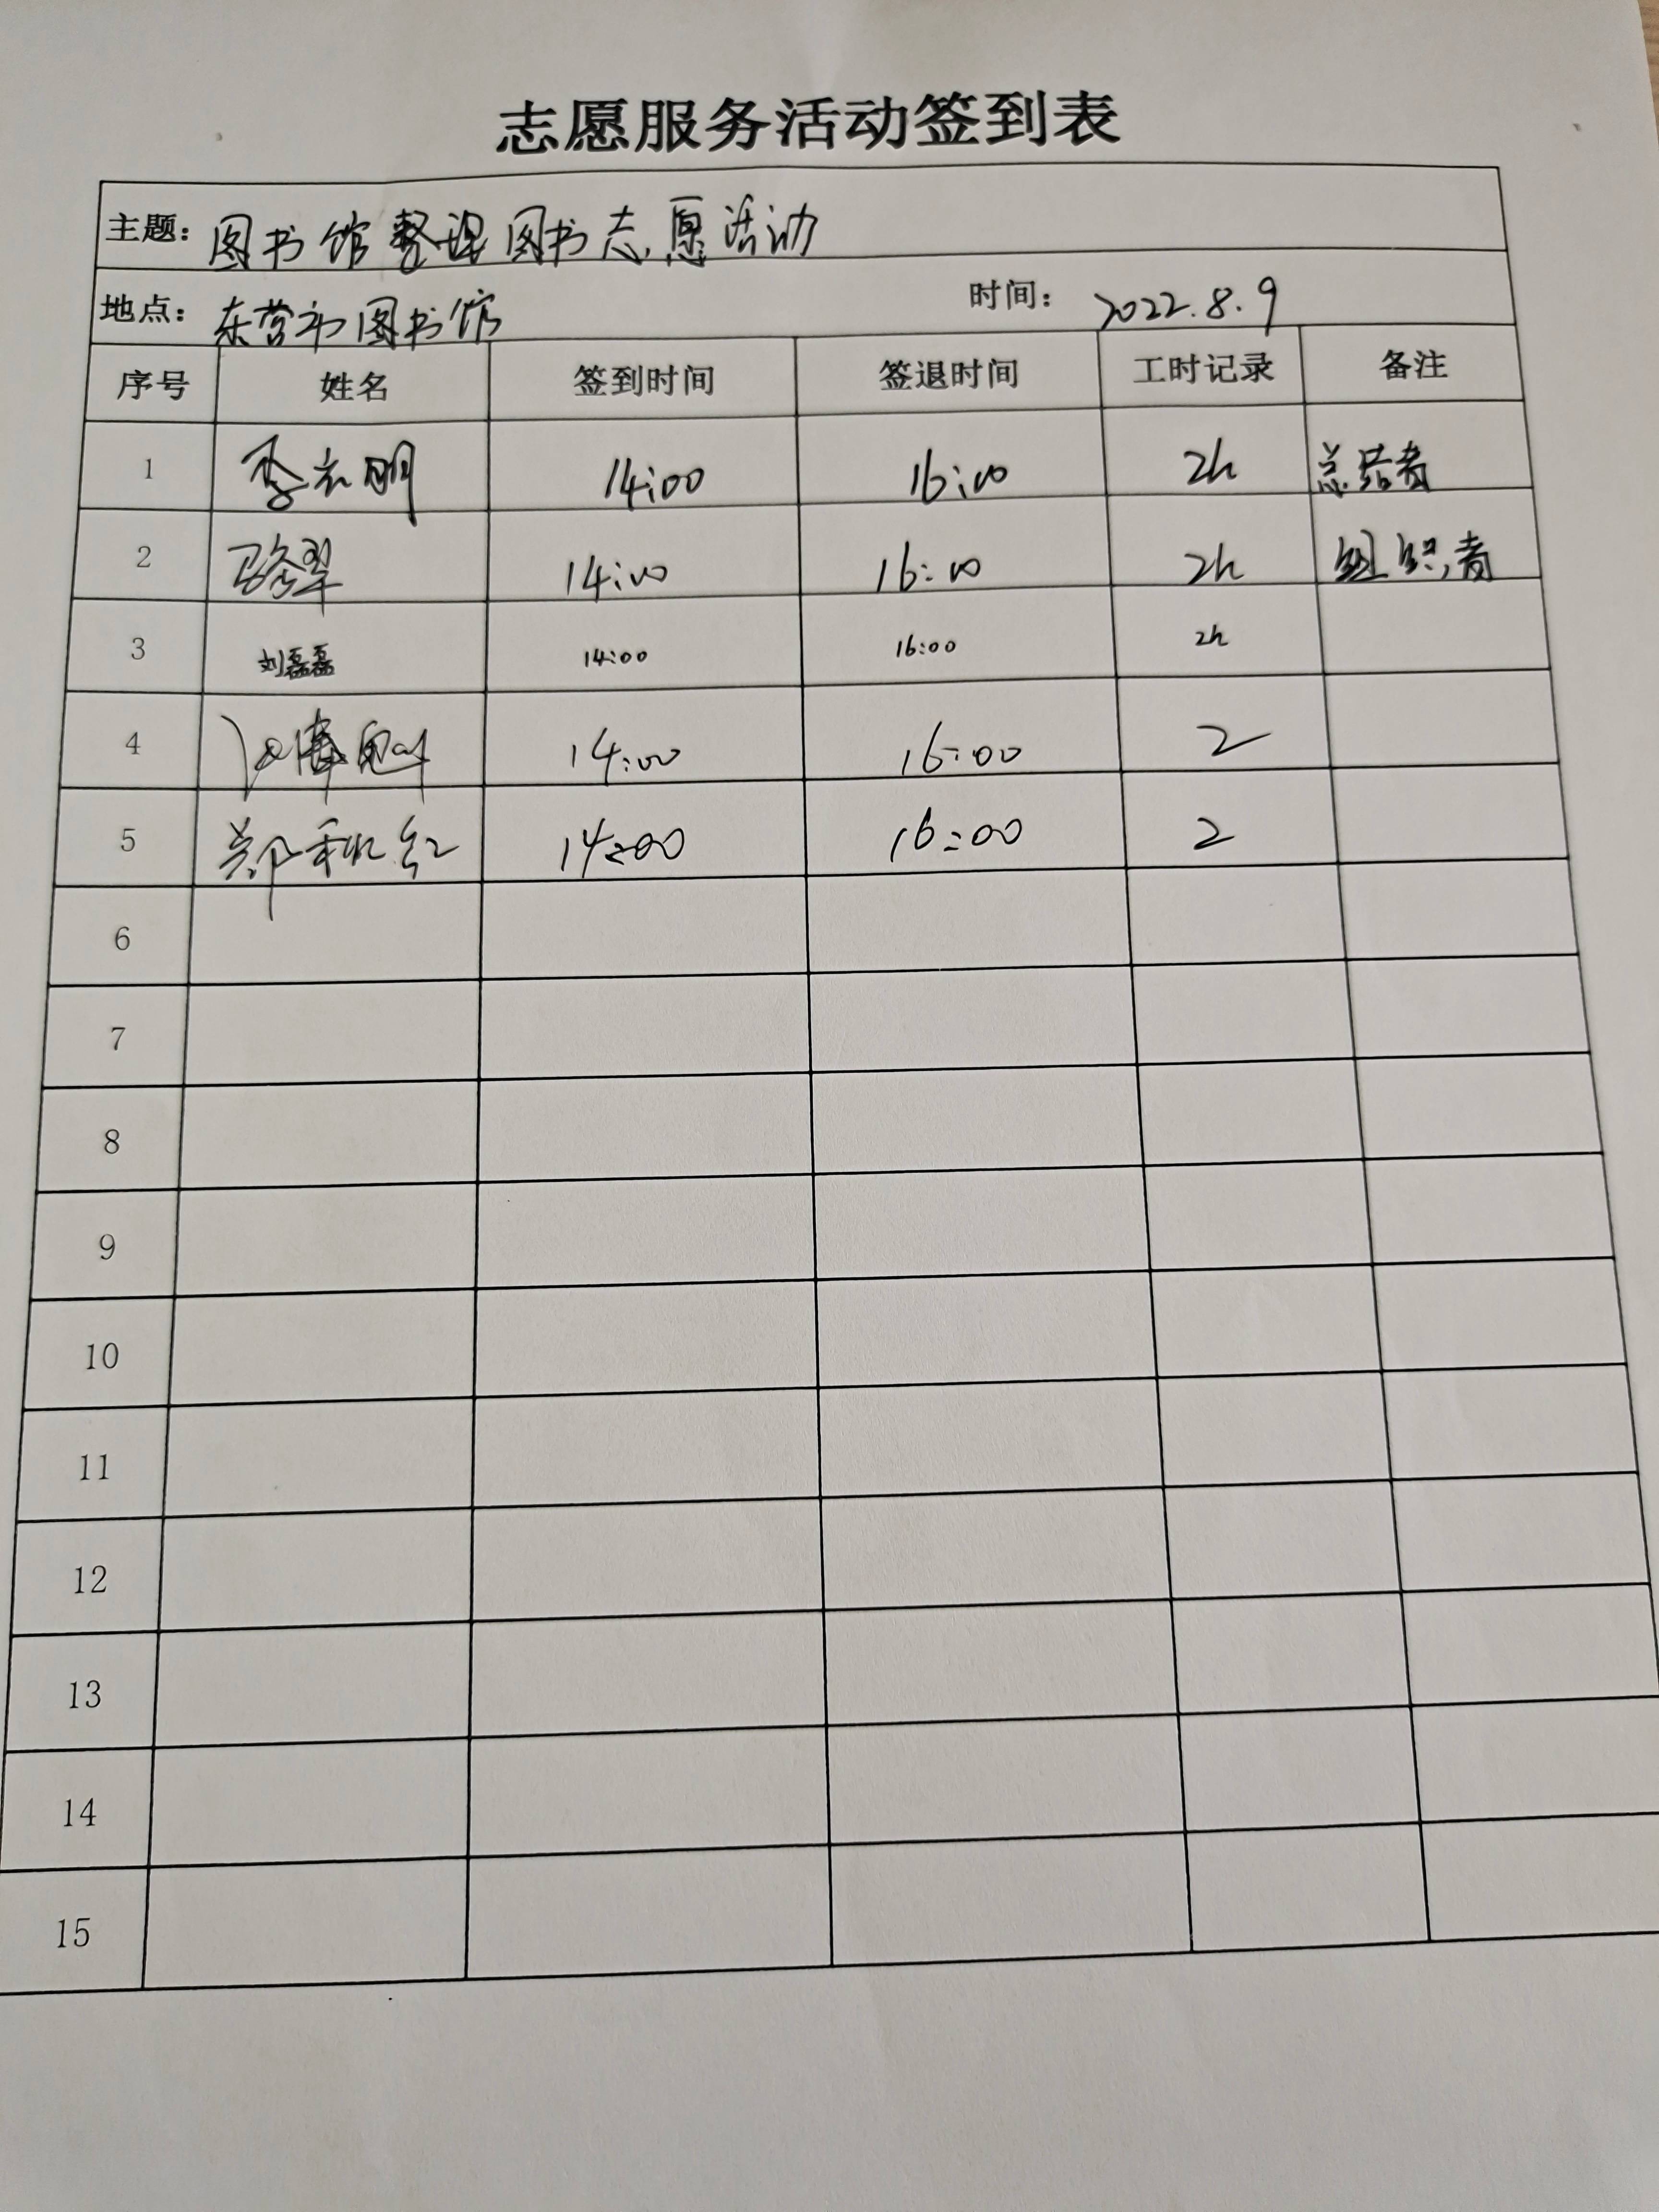 志愿服务活动签到表
主题：图书馆整理图书志愿活动
地点：东营市图书馆 时间：2022.8.9
序号 姓名 签到时间 签退时间 工时记录 备注
1 李云明 14:00 16:00 2h 总结者
2 14:00 16:00 2h 组织者
3 刘磊磊 14:00 16:00 2h
4 14:00 16:00 2
5 郑秋红 14:00 16:00 2
6
7
8
9
10
11
12
13
14
15